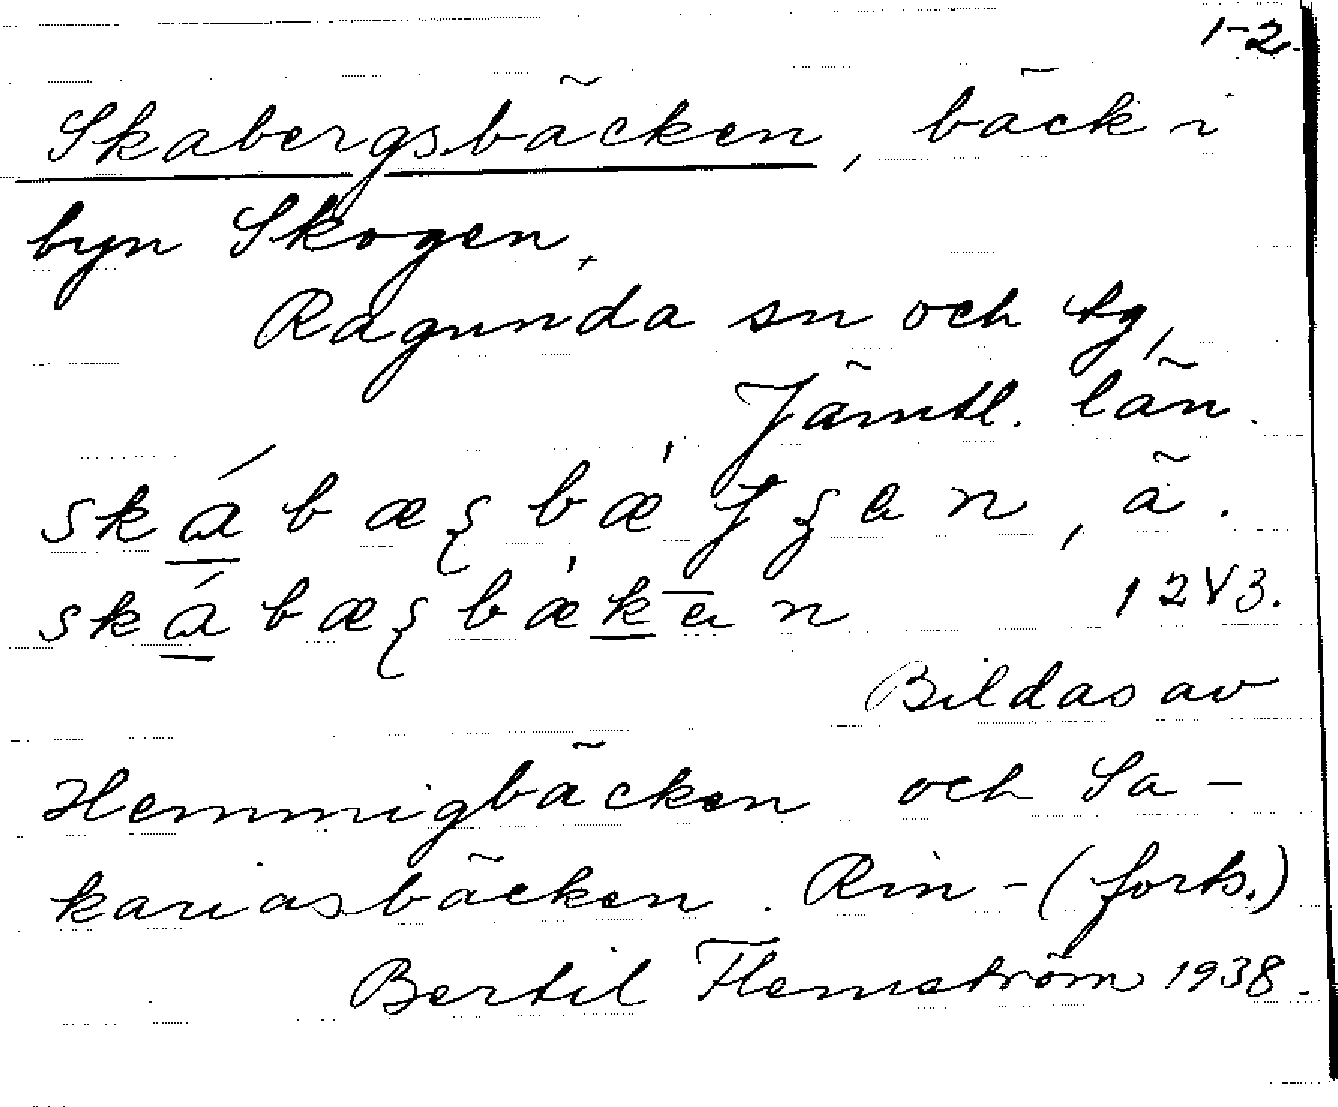 1-2.
Skabergsbäcken, bäck i
byn Skogen,
Ragunda sn och tg,
Jämtl. län.
1243.
Bildas av
Hemmigbäcken och Sa-
kariasbäcken. Rin-(forts.)
Bertil Flemström 1938.